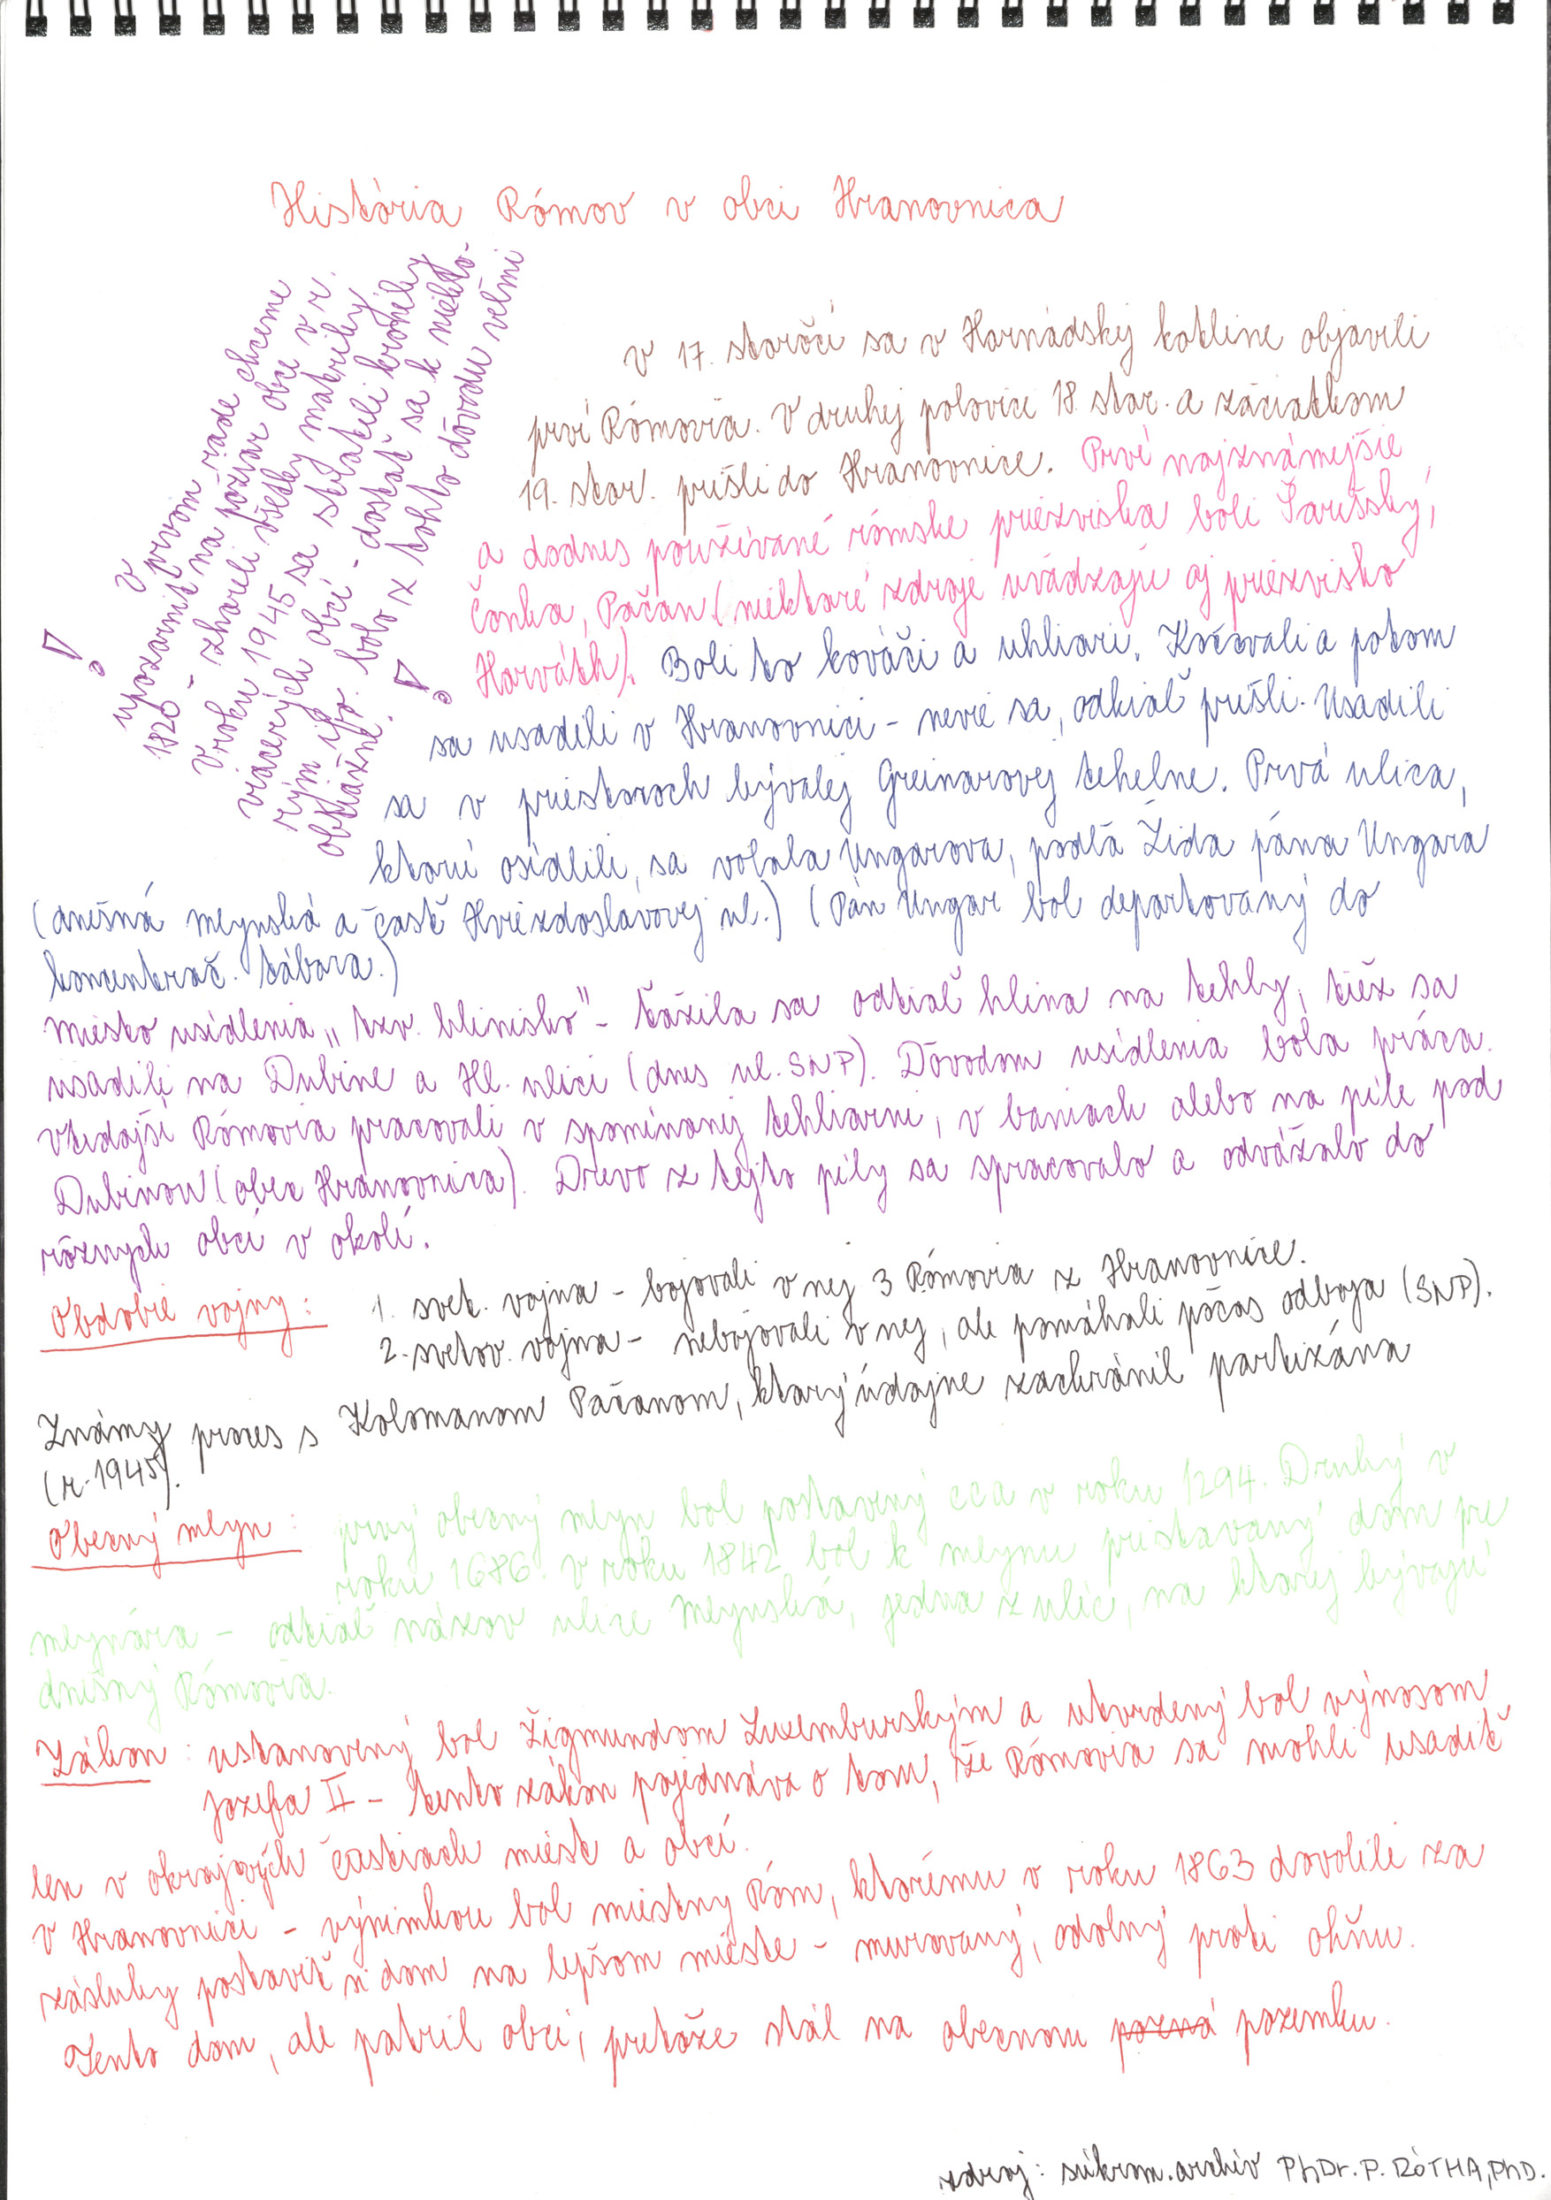 História Rómov v obci Hranovnica
! V prvom rade chceme
upozorniť na požiar obce v r.
1820 - zhoreli všetky matriky.
V roku 1945 sa stratili kroniky
viacerých obcí - dostať sa k niekto-
rým info. bolo z tohto dôvodu veľmi
obtiažne. !
V 17. storočí sa v Hornádskej kotline objavili
prví Rómovia. V druhej polovici 18. stor. a začiatkom
19. stor. prišli do Hranovnice. Prvé najznámejšie
a dodnes používané rómske priezviská boli Šarišský,
Čonka, Pačan (niektoré zdroje uvádzajú aj priezvisko
Horváth). Boli to kováči a uhliari. Kočovali a potom
sa usadili v Hranovnici - nevie sa, odkiaľ prišli. Usadili
sa v priestoroch bývalej Greinarovej tehelne. Prvá ulica,
ktorú osídlili, sa volala Ungarova, podľa Žida pána Ungara
(dnešná Mlynská a časť Hviezdoslavovej ul.) (Pán Ungar bol deportovaný do
koncentrač. tábora.)
Miesto usídlenia „tzv. hlinisko" - ťažila sa odtiaľ hlina na tehly, tiež sa
usadili na Dubine a Hl. ulici (dnes ul. SNP). Dôvodom usídlenia bola práca.
Vtedajší Rómovia pracovali v spomínanej tehliarni, v baniach alebo na píle pod
Dubinou (obec Hranovnica). Drevo z tejto píly sa spracovalo a odvážalo do
rôznych obcí v okolí.
Obdobie vojny: 1. svet. vojna - bojovali v nej 3 Rómovia z Hranovnice.
2. svetov. vojna - nebojovali v nej, ale pomáhali počas odboja (SNP).
Známy proces s Kolomanom Pačanom, ktorý údajne zachránil partizána
(r. 1945).
Obecný mlyn: prvý obecný mlyn bol postavený cca v roku 1294. Druhý v
roku 1686. V roku 1842 bol k mlynu pristavaný dom pre
mlynára - odtiaľ názov ulice Mlynská, jedna z ulíc, na ktorej bývajú
dnešný Rómovia.
Zákon: ustanovený bol Žigmundom Luxemburským a utvrdený bol výnosom
Jozefa II - tento zákon pojednáva o tom, že Rómovia sa mohli usadiť
len v okrajových častiach miest a obcí.
V Hranovnici - výnimkou bol miestny Róm, ktorému v roku 1863 dovolili za
zásluhy postaviť si dom na lepšom mieste - murovaný, odolný proti ohňu.
Tento dom, ale patril obci, pretože stál na obecnom pozná pozemku.
zdroj: súkrom. archív PhDr. P. RÓTHA, PhD.